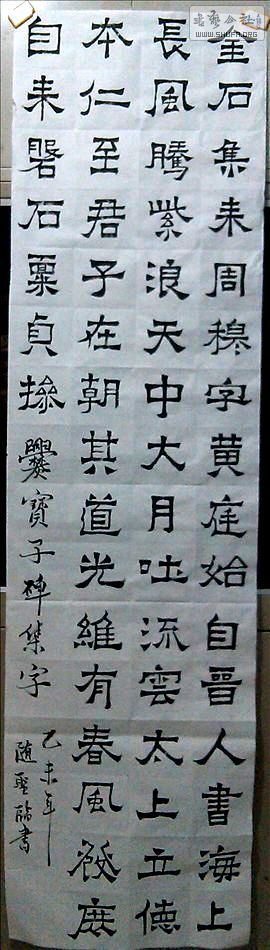 金石集来周穆字黄庭始自晋人書海上
長風騰紫浪天中大月吐流雲太上立德
本仁至君子在朝其道光維有春風發庶
自来磐石稟貞操 爨寶子碑集字
乙未年
随聖臨書
書藝公社
WWW.SHUFA.ORG